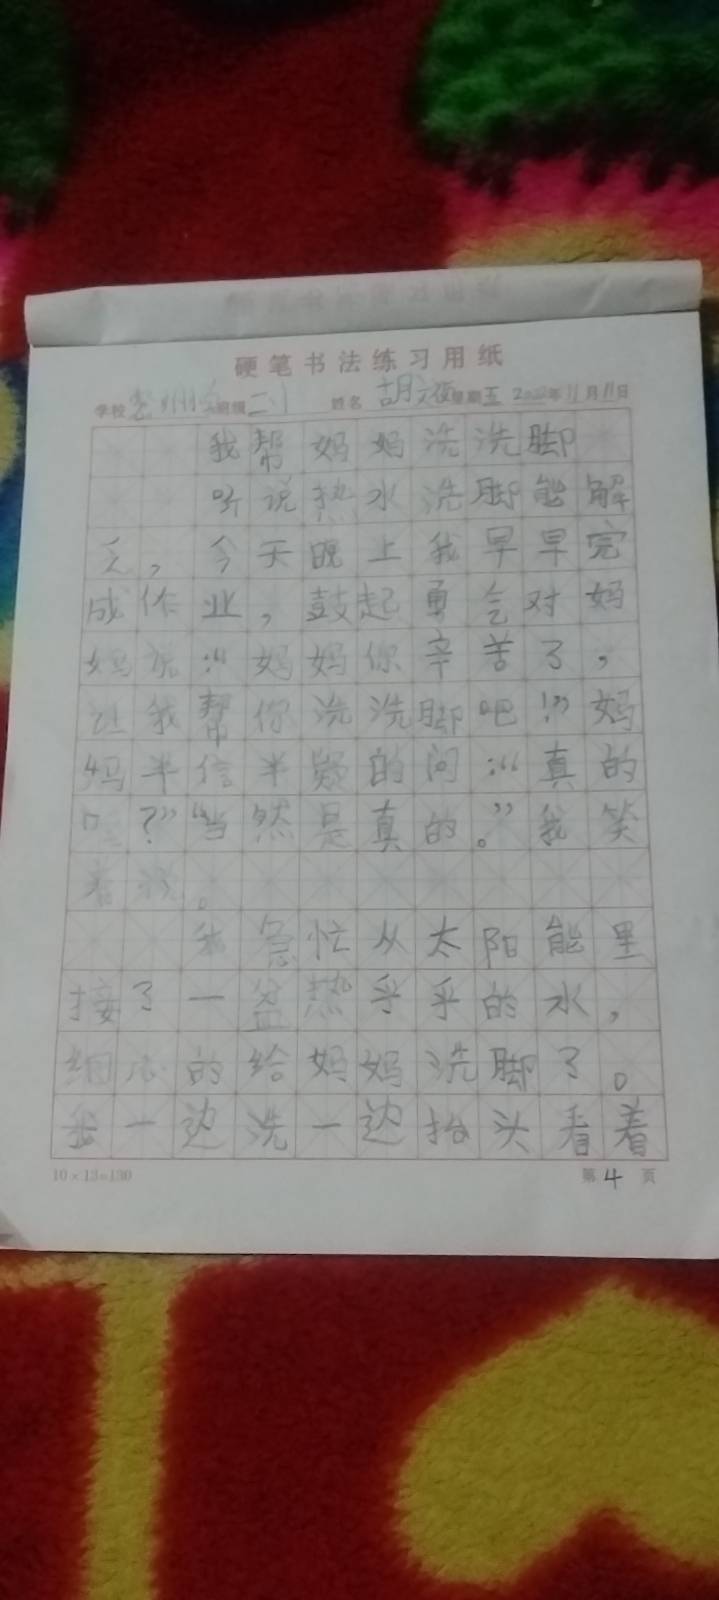 硬笔书法练习用纸
学校 班级 二1 姓名 胡 星期五 2022年11月11日
我帮妈妈洗洗脚
听说热水洗脚能解
乏,今天晚上我早早完
成作业,鼓起勇气对妈
妈说:“妈妈你辛苦了,
让我帮你洗洗脚吧!”妈
妈半信半疑的问:“真的
吗?”“当然是真的。”我笑
着说。
我急忙从太阳能里
接了一盆热乎乎的水,
细心的给妈妈洗脚了。
我一边洗一边抬头看着
10×13=130 第4页